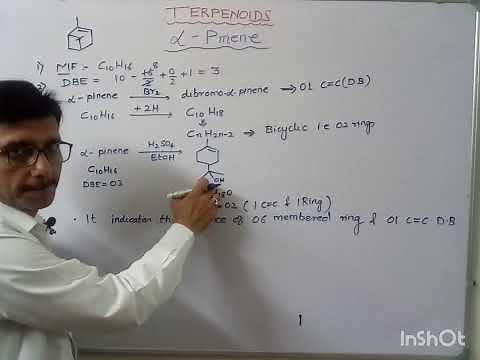 TERPENOIDS
α - Pinene
1) M.F:- C10H16
DBE = 10 - 16/2 8 + 0/2 + 1 = 3
α-pinene Br2 → dibromo-α-pinene → 01 C=C (DB)
C10H16 +2H → C10H18
CnH2n-2 → Bicyclic i.e 02 rings
α - pinene H2SO4 → EtOH
C10H16
DBE=03
OH
18O
=02 (1 C=C & 1 Ring)
• It indicates the ce of 06 membered ring & 01 C=C D.B
1
InShOt